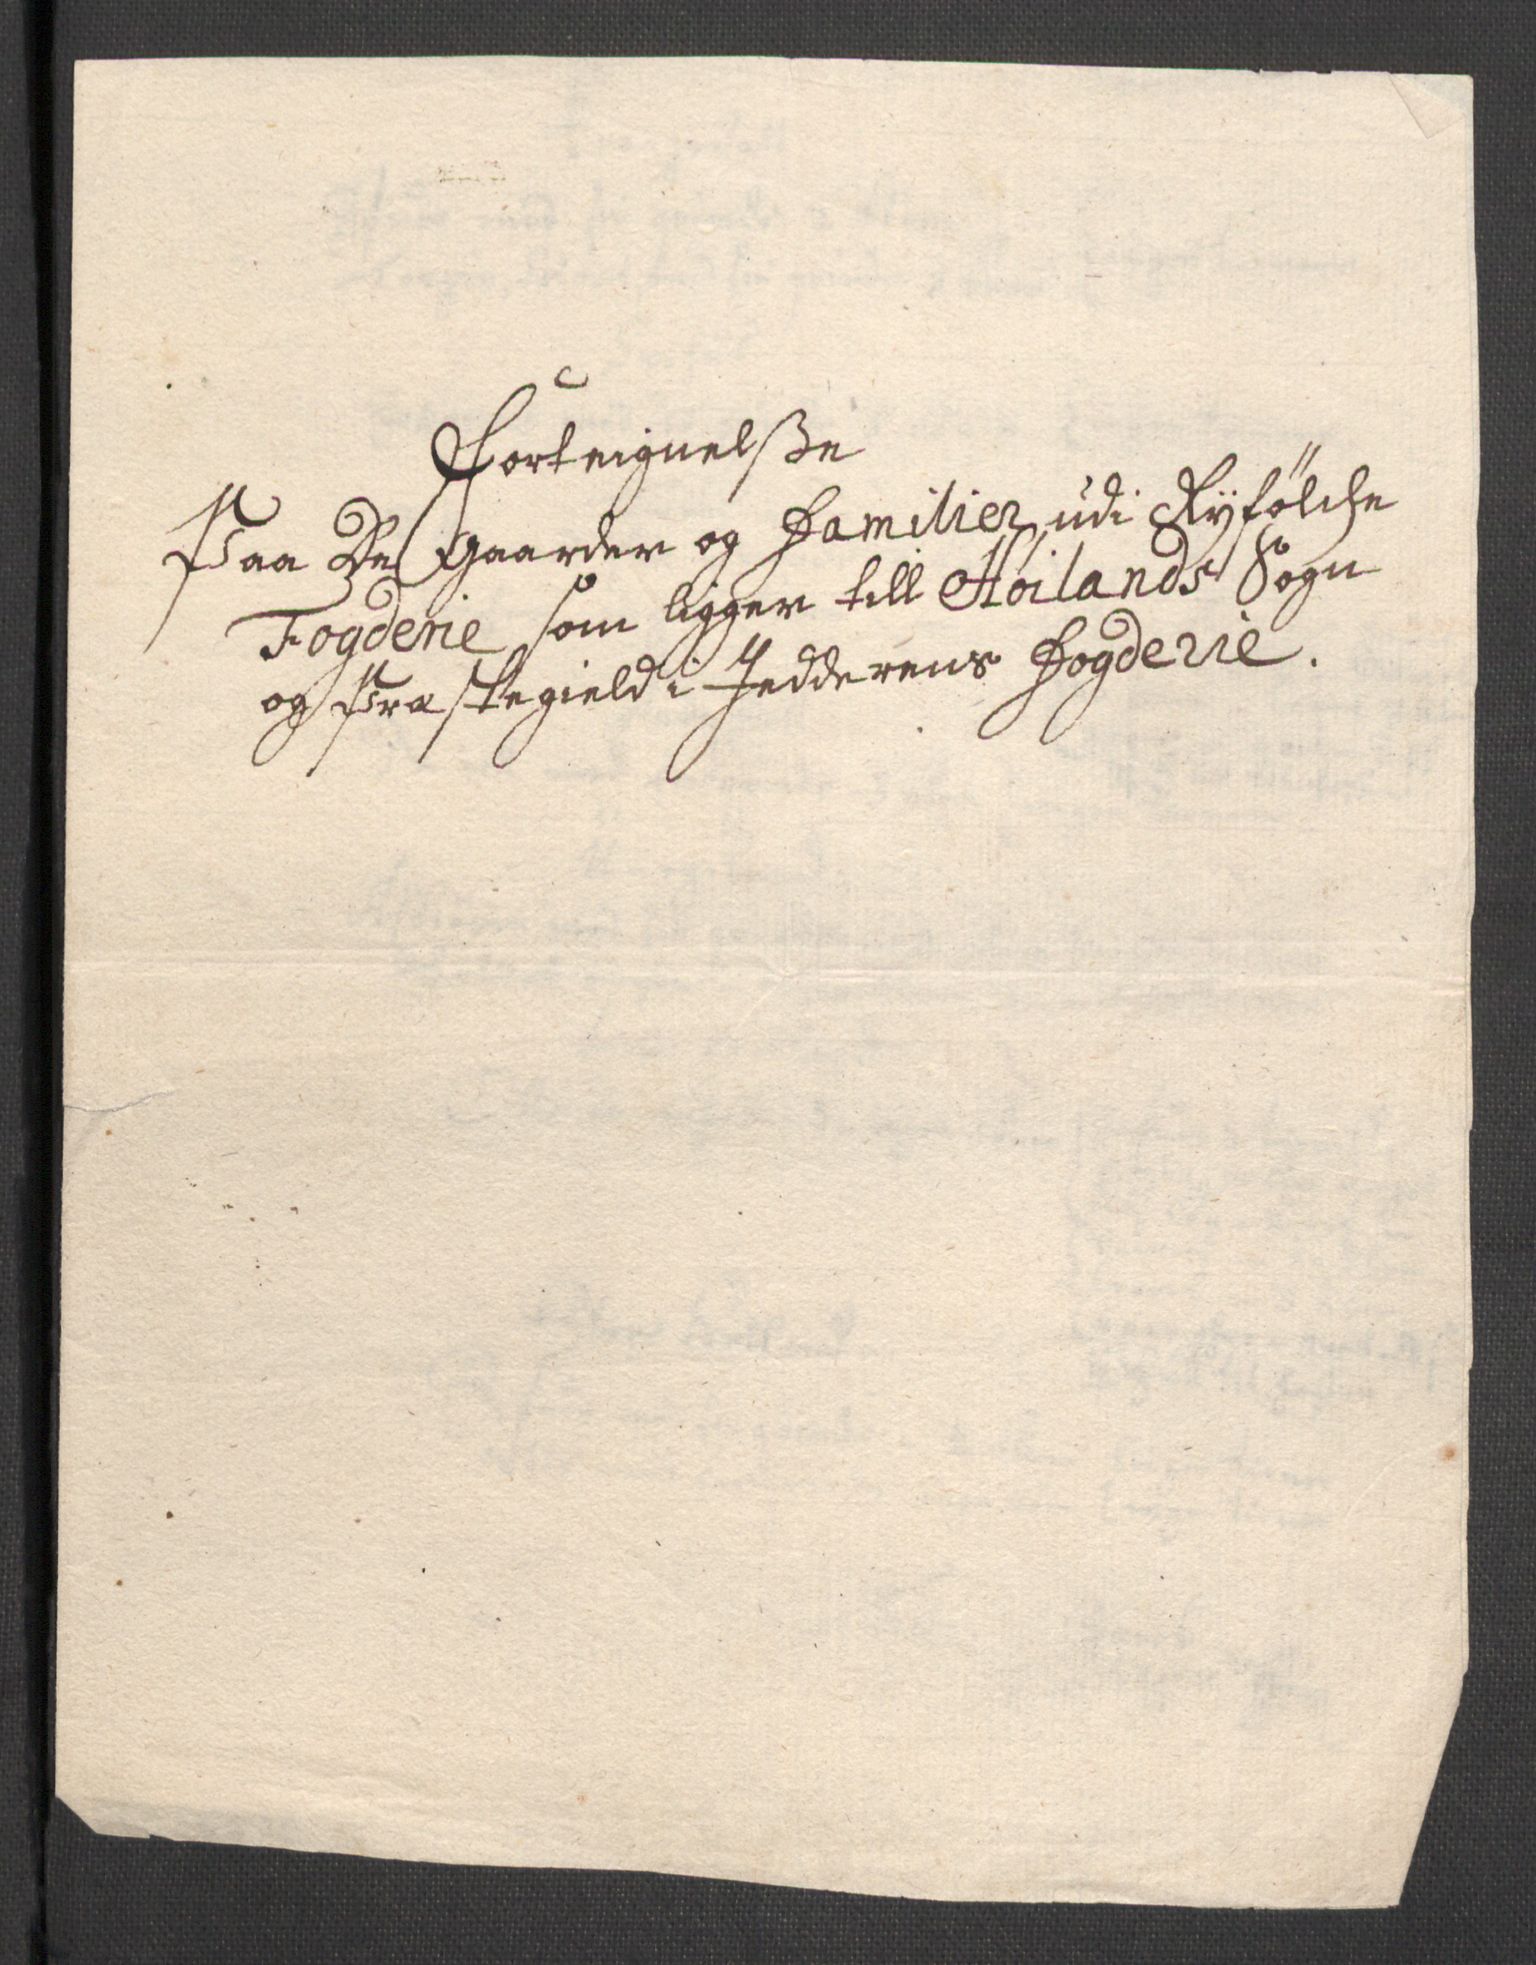 Forteignelsße
Paa De Gaarder og Familier udi Ryfölche
Fogderie som ligger till Höilands Sogn
og Præstegield i Jedderens Fogderie.